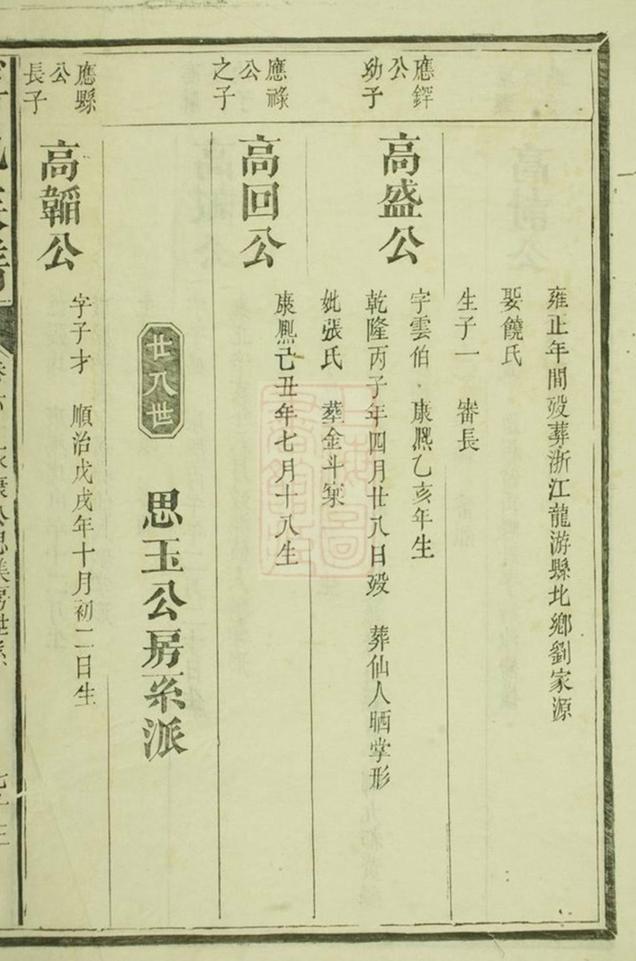 雍正年間殁葬浙江龍游縣北鄉劉家源
娶饒氏
生子一 審長
應鐸公幼子
高盛公
字雲伯 康熈乙亥年生
乾隆丙子年四月廿八日殁 葬仙人晒掌形
妣張氏 葬金斗窠
應祿公之子
高回公
康熈己丑年七月十八生
廿八世
思玉公房系派
應縣公長子
高韜公
字子才 順治戊戌年十月初二日生